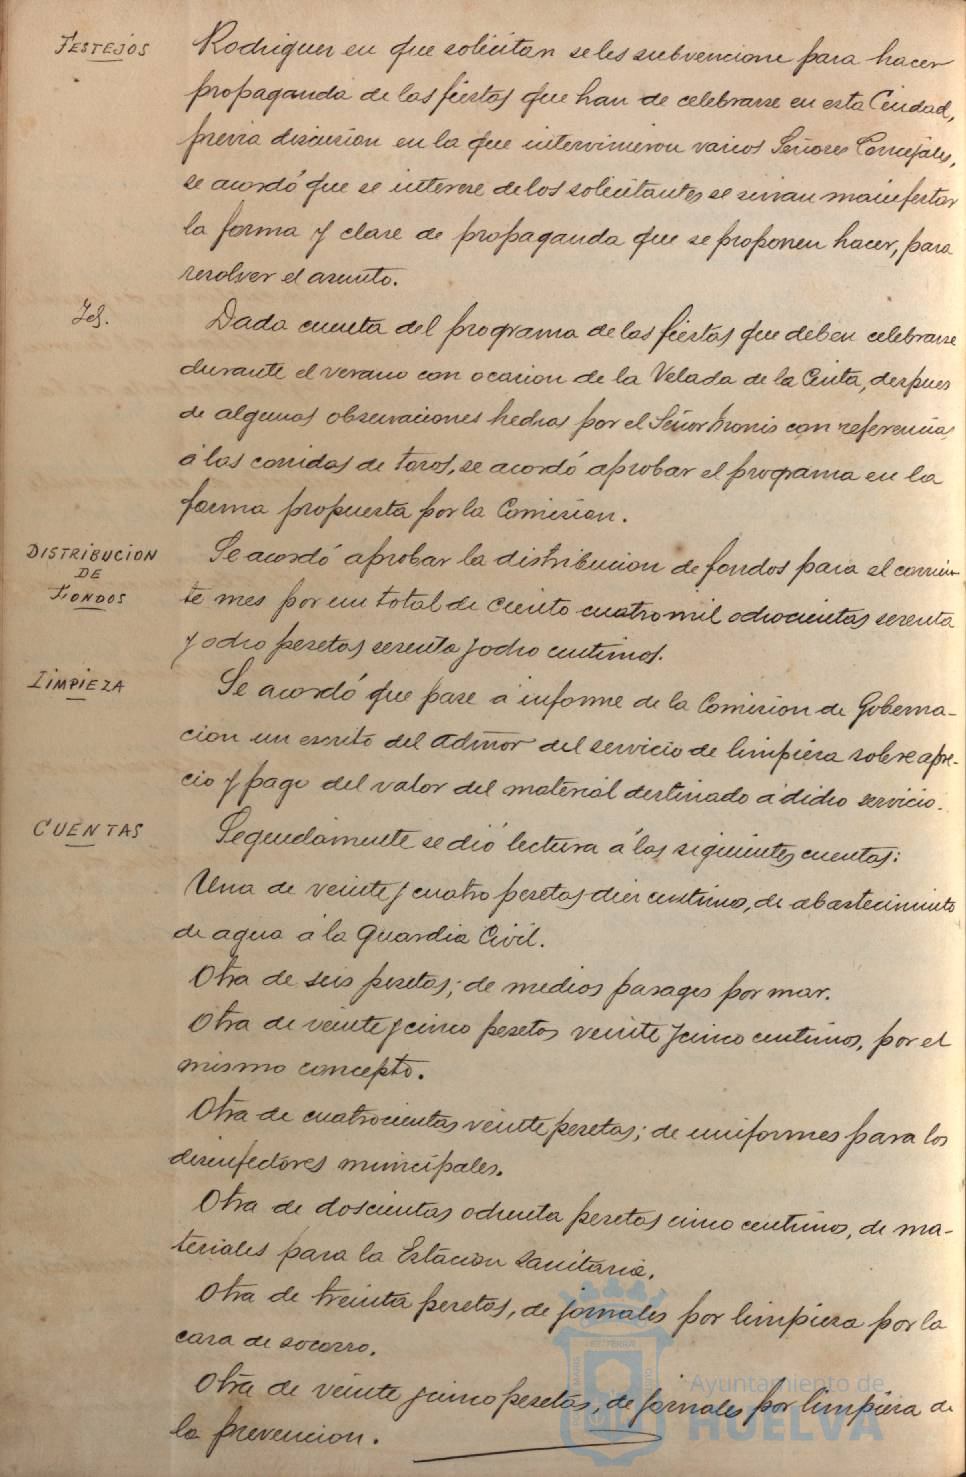 FESTEJOS
Rodriguez en que solicitan se les subvencione para hacer
propaganda de las fiestas que han de celebrarse en esta Ciudad,
previa discusion en la que intervinieron varios Señores Concejales,
se acordó que se interese de los solicitantes se sirvan manifestar
la forma y clase de propaganda que se proponen hacer, para
resolver el asunto.
Id.
Dada cuenta del programa de las fiestas que deben celebrarse
durante el verano con ocasion de la Velada de la Cinta, despues
de algunas observaciones hechas por el Señor con referencia
á las corridas de toros, se acordó aprobar el programa en la
forma propuesta por la Comision.
DISTRIBUCION
DE
FONDOS
Se acordó aprobar la distribucion de fondos para el corrien-
te mes por un total de ciento cuatro mil ochocientas sesenta
y ocho pesetas sesenta y ocho centimos.
LIMPIEZA
Se acordó que pase á informe de la Comision de Goberna-
cion un escrito del Admõr del servicio de limpieza sobre apre-
cio y pago del valor del material destinado á dicho servicio.
CUENTAS
Seguidamente se dió lectura á las siguientes cuentas:
Una de veinte y cuatro pesetas diez centimos, de abastecimiento
de agua á la Guardia Civil.
Otra de seis pesetas; de medios pasages por mar.
Otra de veinte y cinco pesetas veinte y cinco centimos, por el
mismo concepto.
Otra de cuatrocientas veinte pesetas; de uniformes para los
desinfectores municipales.
Otra de doscientas ochenta pesetas cinco centimos, de ma-
teriales para la Estacion Sanitaria.
Otra de treinta pesetas, de jornales por limpieza por la
casa de socorro.
Otra de veinte y cinco pesetas, de jornales por limpieza de
la prevencion.
Ayuntamiento de
HUELVA